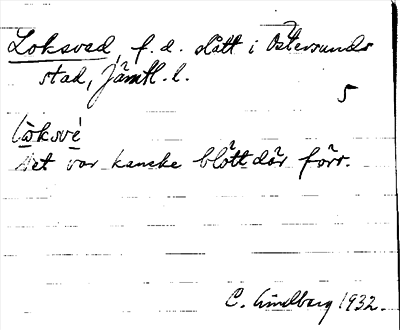 Loksved, f. d. slått i Östersunds
stad, Jämtl. l.
5
lo̱ksve̱̍
Det var kanske blött där förr.
C. Lindberg 1932.